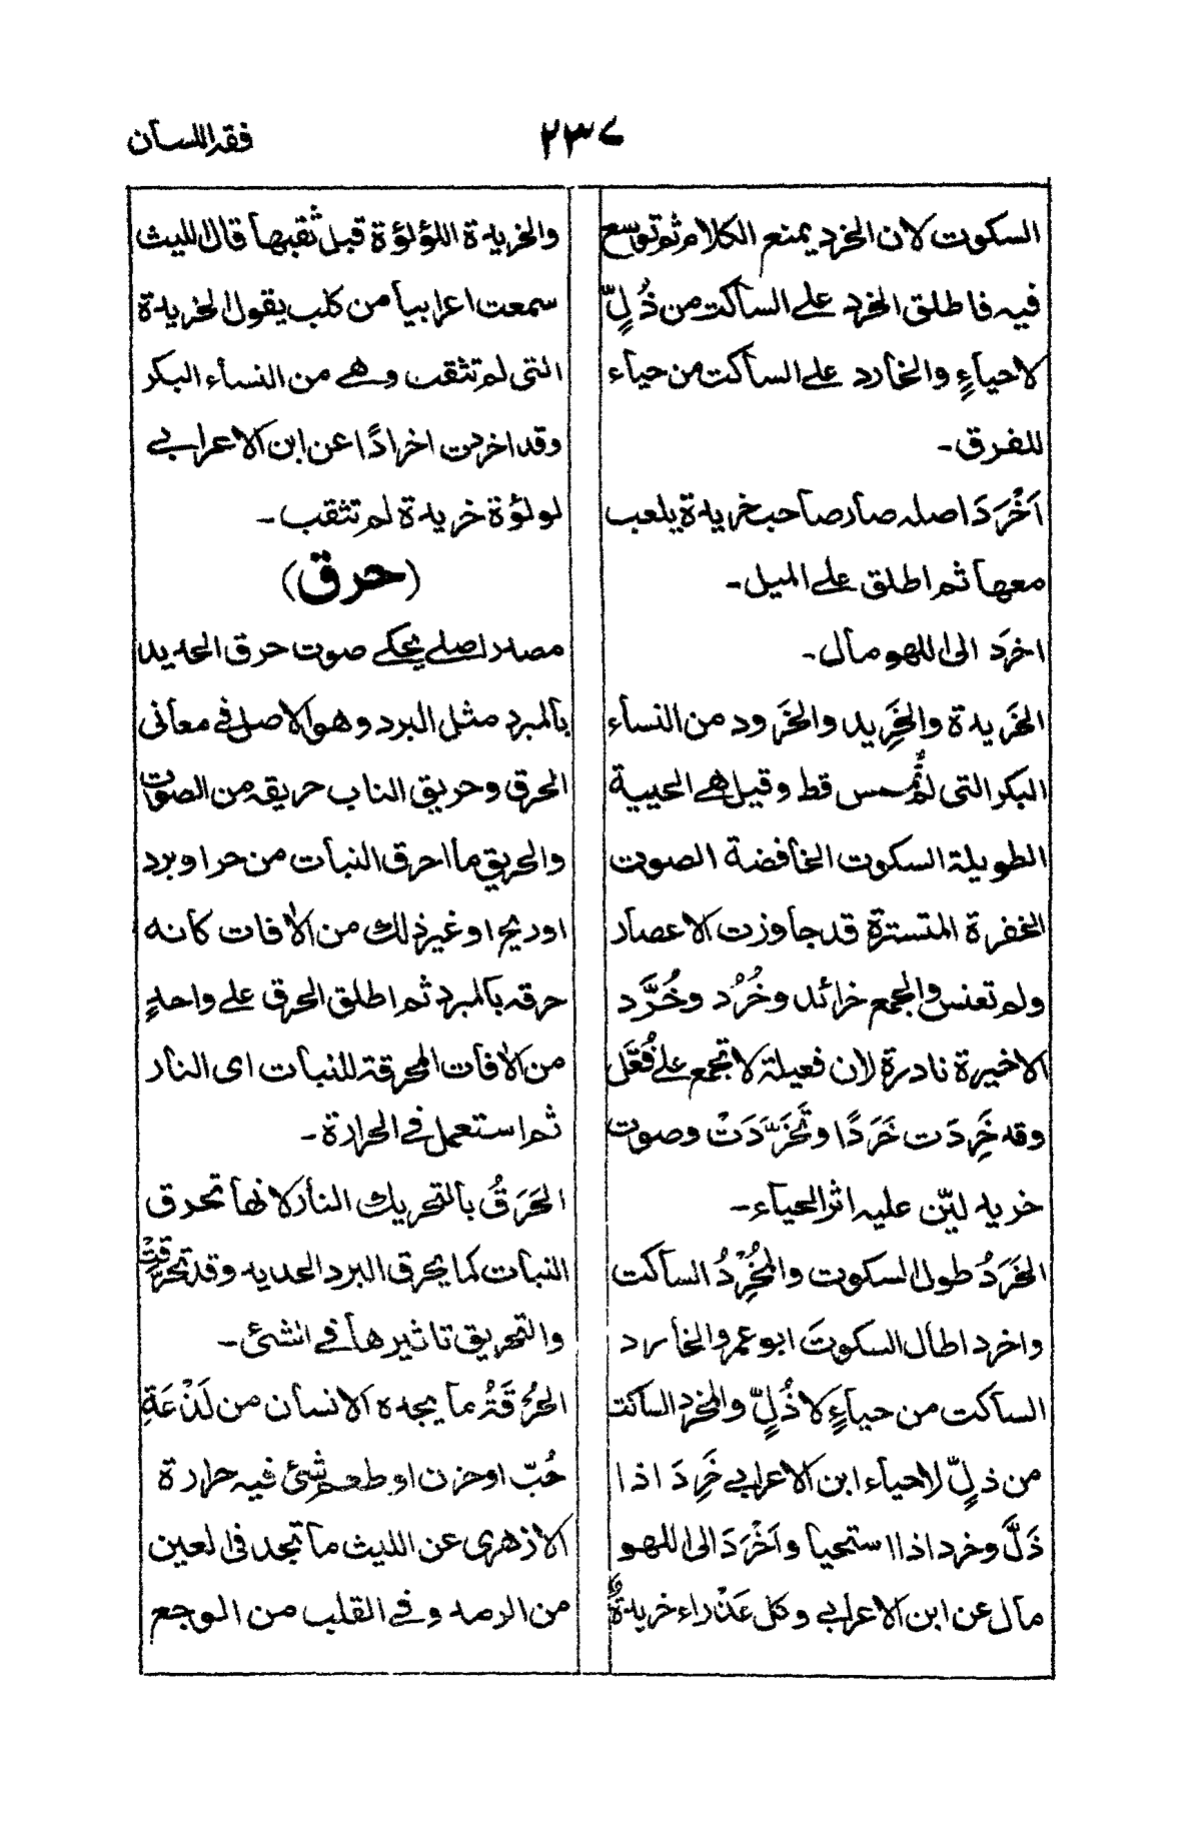 فقه اللسان
٢٣٧
السكوت لان الخرد يمنع الكلام ثم توسع
فيه فاطلق الخرد على الساكت من ذُلٍّ
لاحياءٍ والخارد على الساكت من حياء
للفرق۔
اَخْرَدَ اصله صار صاحب خريدة يلعب
معها ثم اطلق على الميل۔
اخرَد الى اللهو مال۔
الخَريدة والخَرِيد والخَرود من النساء
البكر التى لم تُمسس قط وقيل هى الحيية
الطويلة السكوت الخافضة الصوت
الخفرة المتسترة قد جاوزت الاعصار
ولم تعنس والجمع خرائد وخُرُد وخُرَّد
الاخيرة نادرة لان فعيلة لا تجمع على فُعَّل
وقد خَرِدَت خَرَدًا وتَخَرَّدَتْ وصوت
خريد ليّن عليه اثر الحياء۔
الخَرَدُ طول السكوت والمُخْرِدُ الساكت
واخرد اطال السكوتَ ابو عمرو الخارد
الساكت من حياءٍ لا ذُلٍّ والمخرد الساكت
من ذلٍّ لاحياء ابن الاعرابى خَرِدَ اذا
ذَلَّ وخرد اذا استحيا واَخْرَدَ الى اللهو
مال عن ابن الاعرابى وكل عَذْراء خريدةٌ
والخريدة اللؤلؤة قبل ثَقبها قال الليث
سمعت اعرابيا من كلب يقول الخريدة
التى لم تثقب وهى من النساء البكر
وقد اخردت اخرادًا عن ابن الاعرابى
لولؤة خريدة لم تثقب۔
(حرق)
مصدر اصلى يحكى صوت حرق الحديد
بالمبرد مثل البرد وهو الاصل فى معانى
الحرق وحريق الناب حريقه من الصوت
والحريق ما احرق النبات من حر او برد
او ريح او غير ذلك من الأفات كانه
حرقه بالمبرد ثم اطلق الحرق على واحدٍ
من الأفات المحرقة للنبات اى النار
ثم استعمل فى الحرارة۔
الحَرَقُ بالتحريك النار لانها تحرق
النبات كما يحرق البرد الحديد وقد تحرقتْ
والتحريق تاثيرها فى الشئ۔
الحُرْقَةُ ما يجده الانسان من لَذْعَةِ
حُبّ او حزن او طعم شئ فيه حرارة
الازهرى عن الليث ما تجد فى العين
من الرمد وفى القلب من الوجع